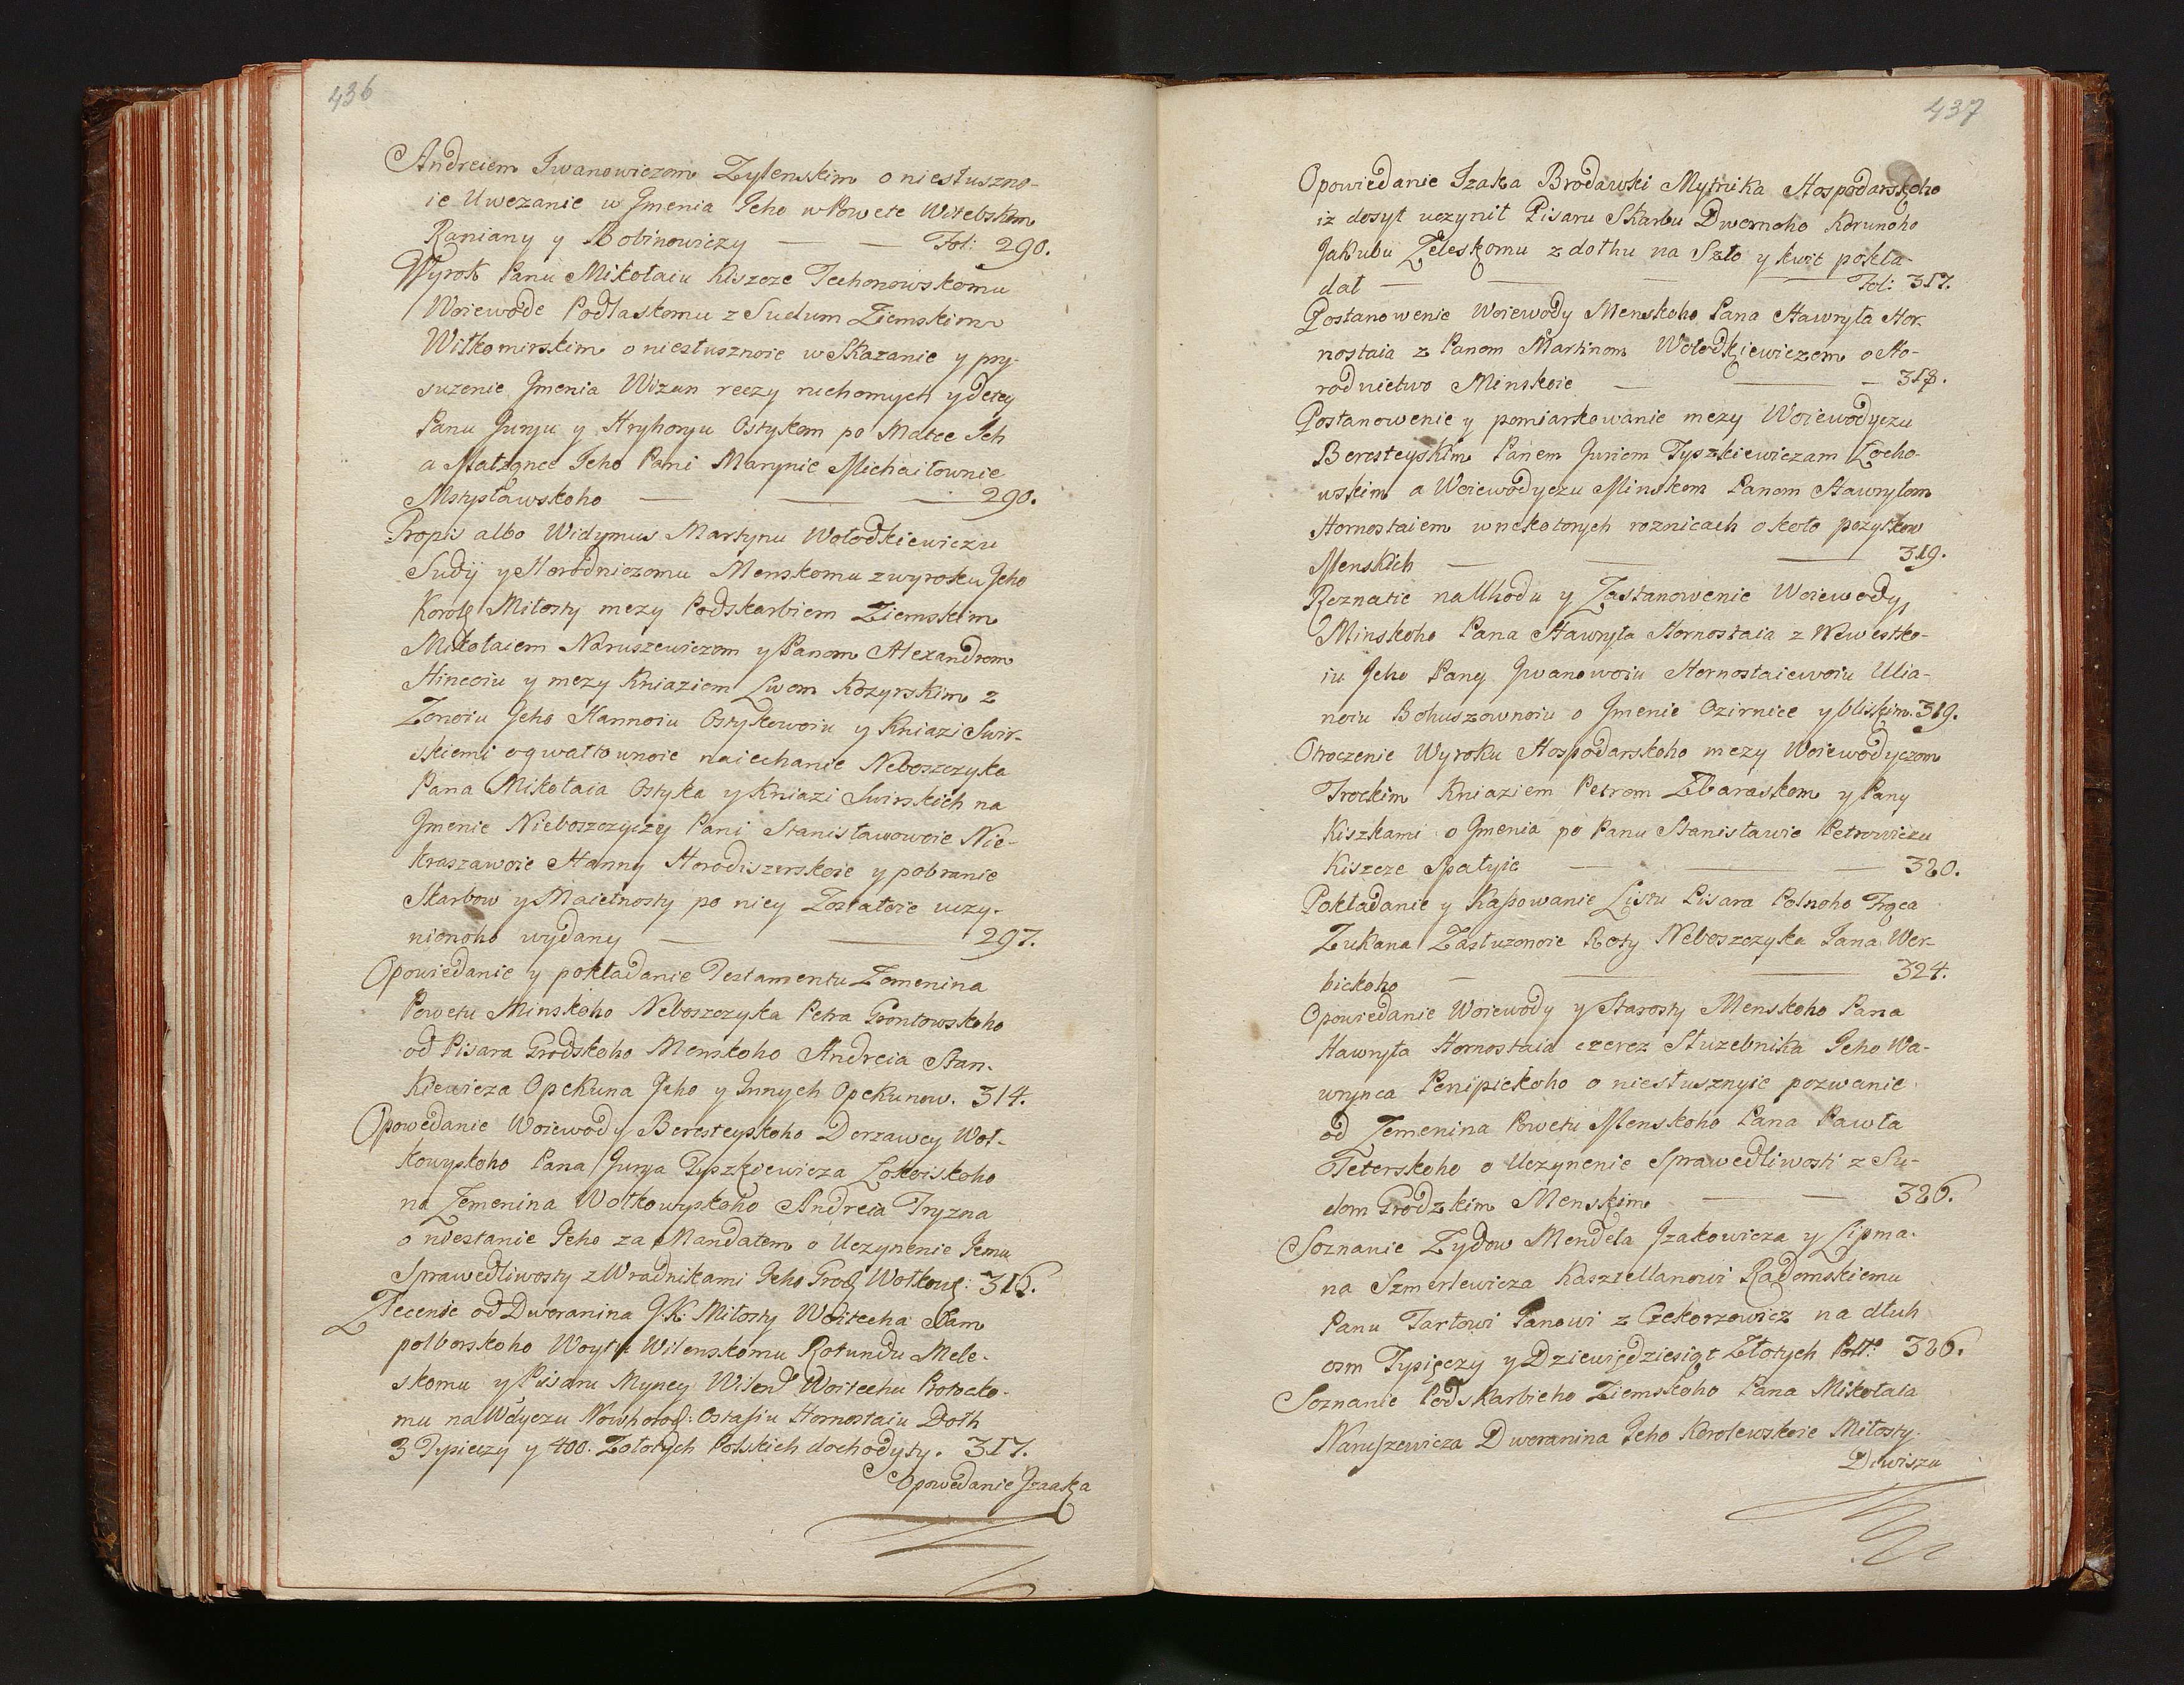 436
Andreiem Iwanowiczom Zylenskim o niesłuszno-
ie Uwezanie w Imenia Jeho w Powete Witebskom
Raniany y Bobinowiczy — — Fol: 290.
Wyrok Panu Mikołaiu Kiszcze Techonowskomu
Woiewode Podlaskomu z Sudum Ziemskim
Wiłkomirskim o niesłusznoie wskazanie y pry-
suzenie Imenia Wizun reczy ruchomych y detey
Panu Juryu y Hryhoryu Ostykom po Matce Ich
a Małzonce Jeho Pani Marynie Michaiłownie
Mstysławskoho — — 290.
Propis albo Widymus Martynu Wołodkiewiczu
Sudij y Horodniczomu Menskomu z wyroku Jeho
Korolę Miłosty mezy Podskarbiem Ziemskim
Mikołaiem Naruszewiczom y Panom Alexandrom
Hincoiu y mezy Kniaziom Lwom Kozyrskim z
Zonoiu Jeho Hannoiu Ostykowoiu y Kniazi Swir-
skiemi o gwałtownoie naiechanie Neboszczyka
Pana Mikołaia Ostyka y Kniazi Swirskich na
Imenie Nieboszczyczy Pani Stanisławowoie Nie-
kraszawoie Hanny Horodiszerskoie y pobranie
Skarbow y Maietnosty po niey Zostałoie uczy-
nionoho wydany — — 297.
Opowiedanie y pokładanie Testamentu Zemenina
Powetu Minskoho Neboszczyka Petra Grontowskoho
od Pisara Grodskoho Menskoho Andreia Stan-
kiewicza Opekuna Jeho y Innych Opekunow. 314.
Opowedanie Woiewody Beresteyskoho Derzawcy Woł-
kowyskoho Pana Jurya Tyszkiewicza Łohoiskoho
na Zemenina Wołkowyskoho Andreia Tryzna
o niestanie Jeho za Mandatem o Uczynenie Jemu
Sprawedliwosty z Wradnikami Jeho Grodz Wołkow: 316.
Zlecenie od Dworanina J.K. Miłosty Woitecha Jam
polborskoho Woytu Wilenskomu Rotundu Mele-
skomu y Pisaru Myncy Wilen Woitechu Protocko-
mu na Wdyczu Nowhorod: Ostafiu Hornostaiu Dołh
3 Tysieczy y 400. Zołotych Polskich dochodyty. 317.
Opowedanie Izaaka
437
Opowiedanie Izaka Brodawki Mytnika Hospodarskoho
iz dosyt uczynił Pisaru Skarbu Dwornoho Korunoho
Jakubu Zeleskomu z dołhu na Szło y kwit pokła-
dał — — — Fol: 317.
Postanowenie Woiewody Menskoho Pana Hawryła Hor-
nostaia z Panom Martinom Wołodkiewiczem o Ho-
rodnictwo Minskoie — — — 318.
Postanowenie y pomiarkowanie mezy Woiewodyczu
Beresteyskim Panem Juriem Tyszkiewiczam Łoho-
wskim a Woiewodyczu Minskom Panom Hawryłom
Hornostaiem w nekotorych roznicach około pozytkow
Menskich — — — 319.
Reznatie na Uhodu y Zastanowenie Woiewody
Minskoho Pana Hawryła Hornostaia z Newestko-
iu Jeho Pany Iwanowoiu Hornostaiewoiu Ulia-
noiu Bohuszownoiu o Imenie Ozirnice y bliskim. 319.
Otroczenie Wyroku Hospodarskoho mezy Woiewodyczom
Trockim Kniaziem Petrom Zbaraskom y Pany
Kiszkami o Imenia po Panu Stanisławie Petrowiczu
Kiszcze Spałyie — — — 320.
Pokładanie y Kassowanie Listu Pisara Polnoho Troca
Zukana Zasłuzonoie Roty Neboszczyka Jana Wer-
bickoho — — — 324.
Opowiedanie Woiewody y Starosty Menskoho Pana
Hawryła Hornostaia czerez Służebnika Jeho Wa-
wrynca Penipickoho o niesłusznyie pozwanie
od Zemenina Powetu Menskoho Pana Pawła
Teterskoho o Uczynenie Sprawedliwosti z Su-
dom Grodzkim Menskim — — 326.
Soznanie Zydow Mendela Izakowicza y Lipma-
na Szmerlewicza Kasztellanowi Radomskiemu
Panu Tarłowi Panowi z Czekorzowicz na dłuh
osm Tysięczy y Dziewiędziesiąt Złotych Polł. 326.
Soznanie Podskarbieho Ziemskoho Pana Mikołaia
Naruszewicza Dworanina Jeho Korolewskoie Miłosty
Diwiszu